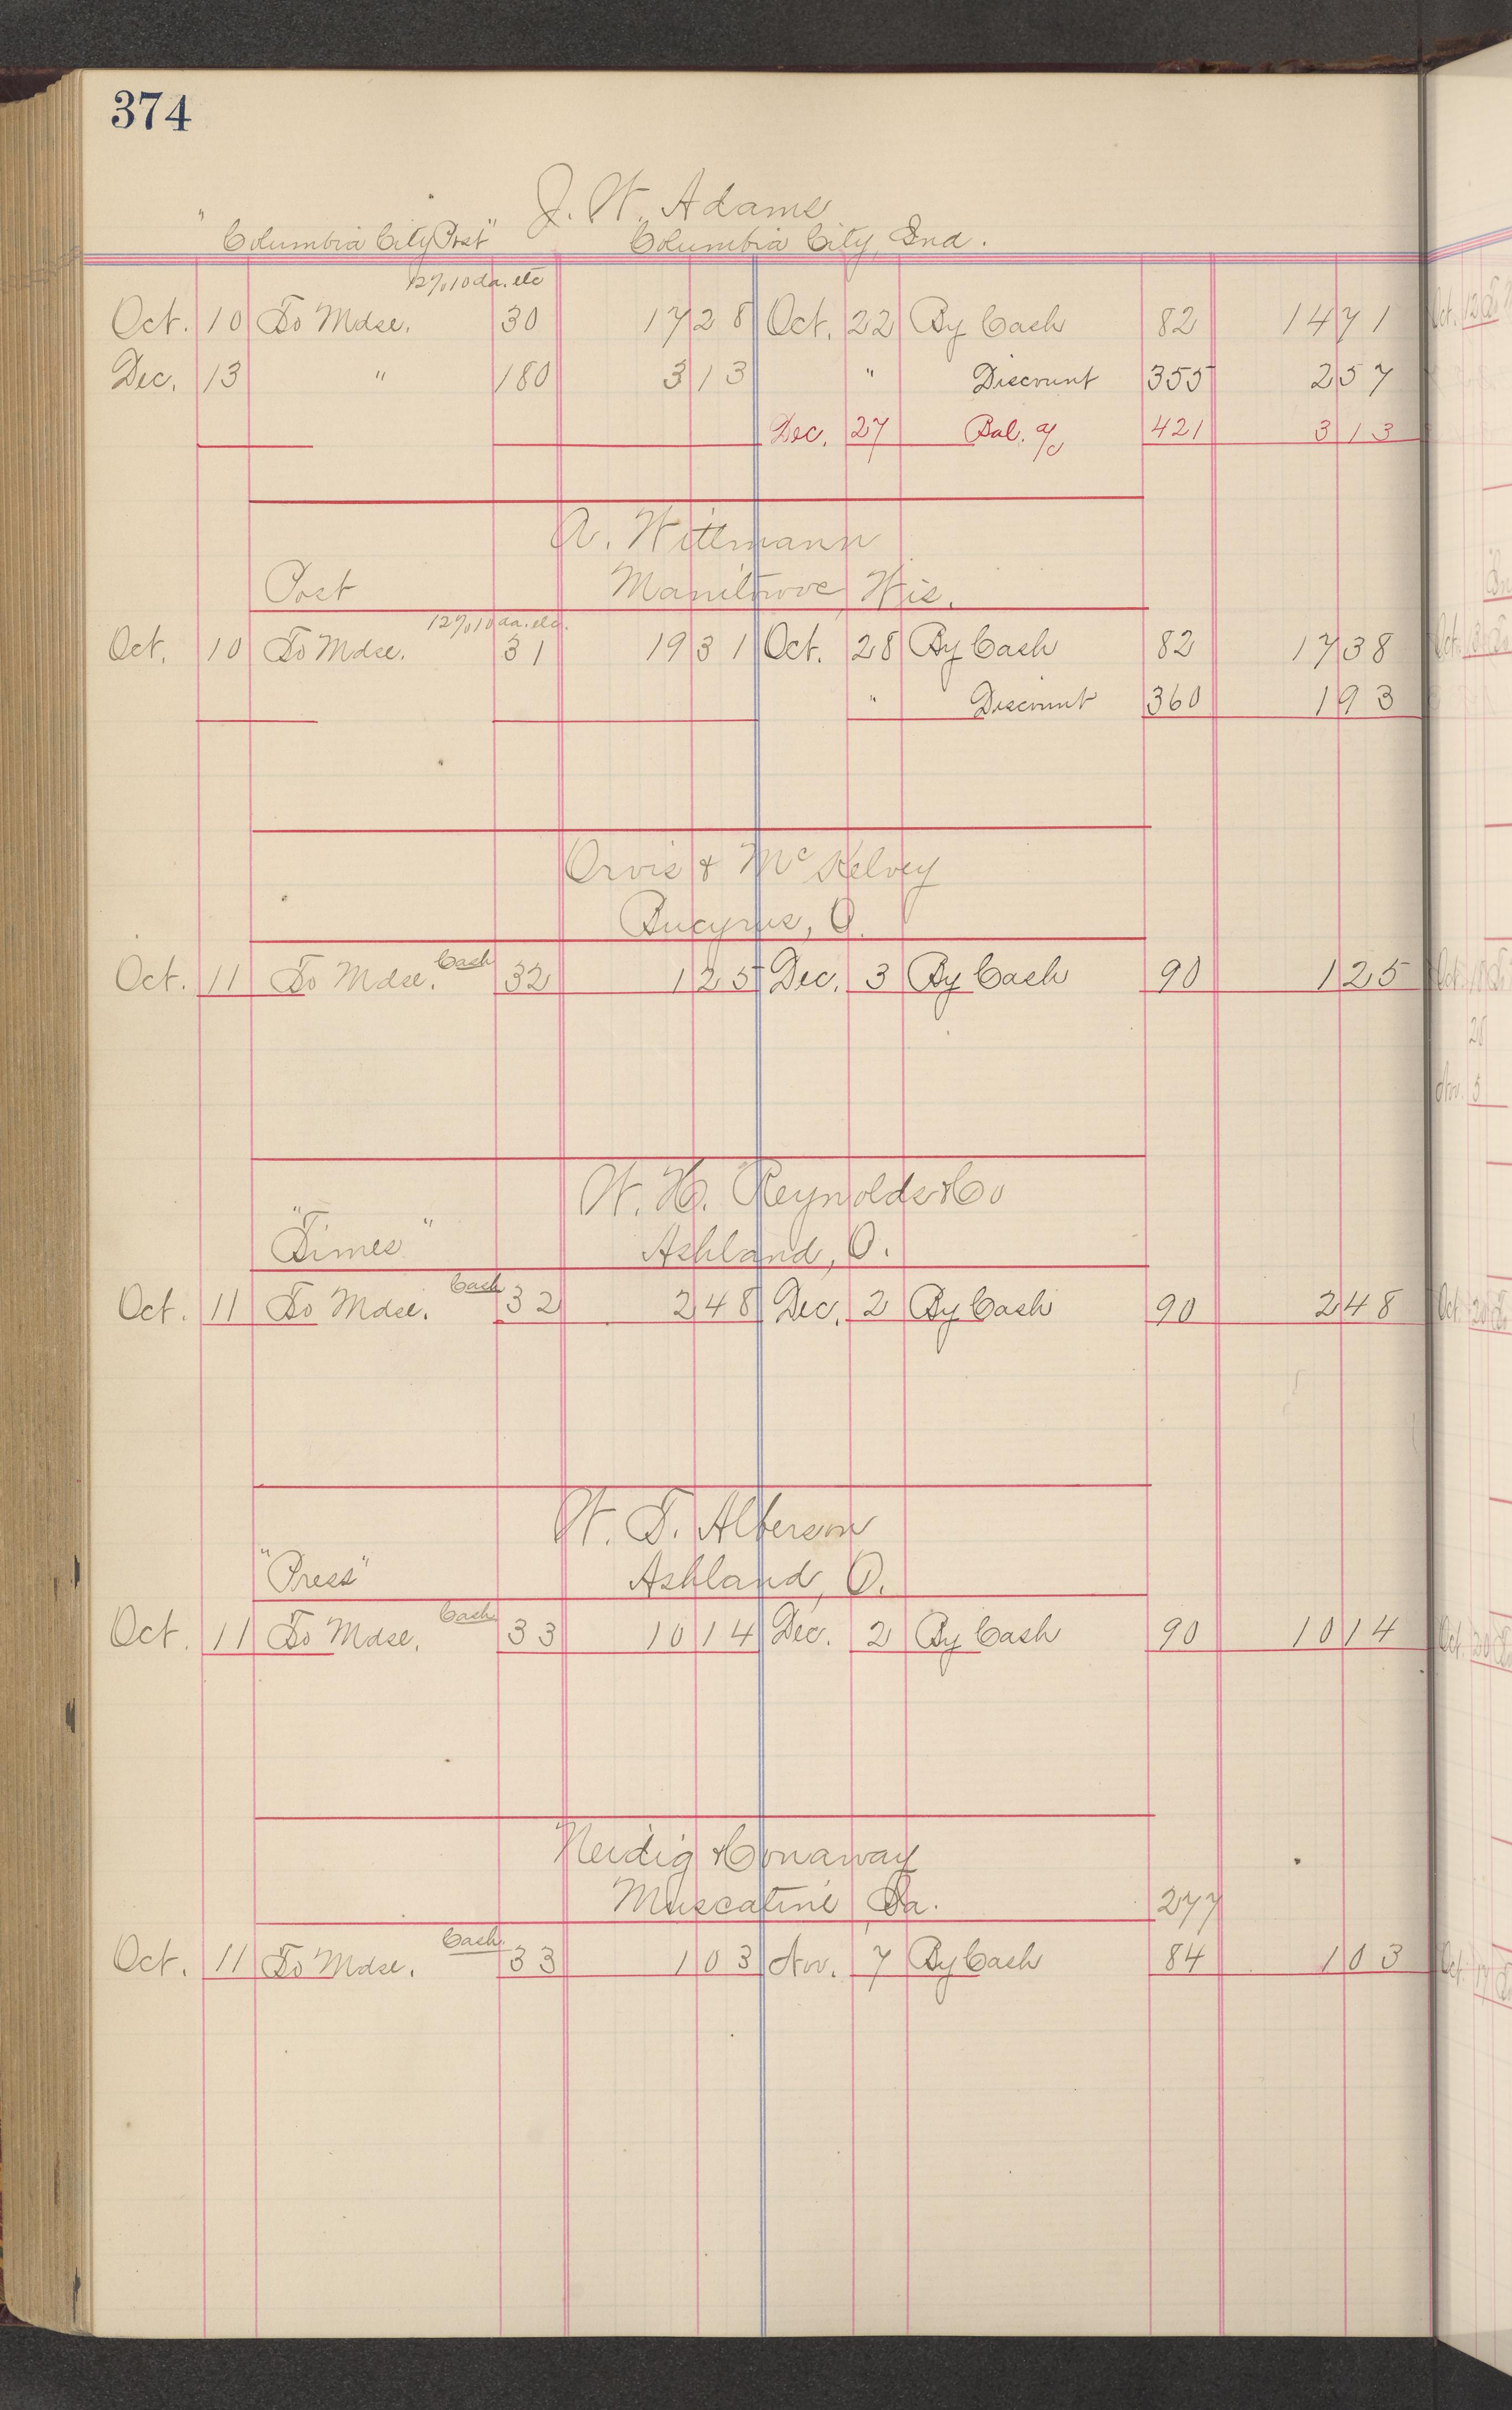 374
J. W. Adams
"Columbia City Post" Columbia City, Ind.
12% 10 da. etc
Oct. 10 To Mdse. 30 17 28 Oct. 22 By Cash 82 14 71
Dec. 13 " 180 3 13 " Discount 355 2 57
Dec. 27 Bal. a/c 421 3 13
A. Wittmann
Post Manitowoc, Wis.
12% 10 da. etc.
Oct. 10 To Mdse. 31 19 31 Oct. 28 By Cash 82 17 38
" Discount 360 1 93
Orvis & McKelvey
Bucyrus, O.
Oct. 11 To Mdse. Cash 32 1 25 Dec. 3 By Cash 90 1 25
W. H. Reynolds & Co
"Times" Ashland, O.
Oct. 11 To Mdse. Cash 32 2 48 Dec. 2 By Cash 90 2 48
W. T. Alberson
"Press" Ashland, O.
Oct. 11 To Mdse. Cash 33 10 14 Dec. 2 By Cash 90 10 14
Neidig & Conaway
Muscatine Ia. 277
Oct. 11 To Mdse. Cash. 33 1 03 Nov. 7 By Cash 84 1 03